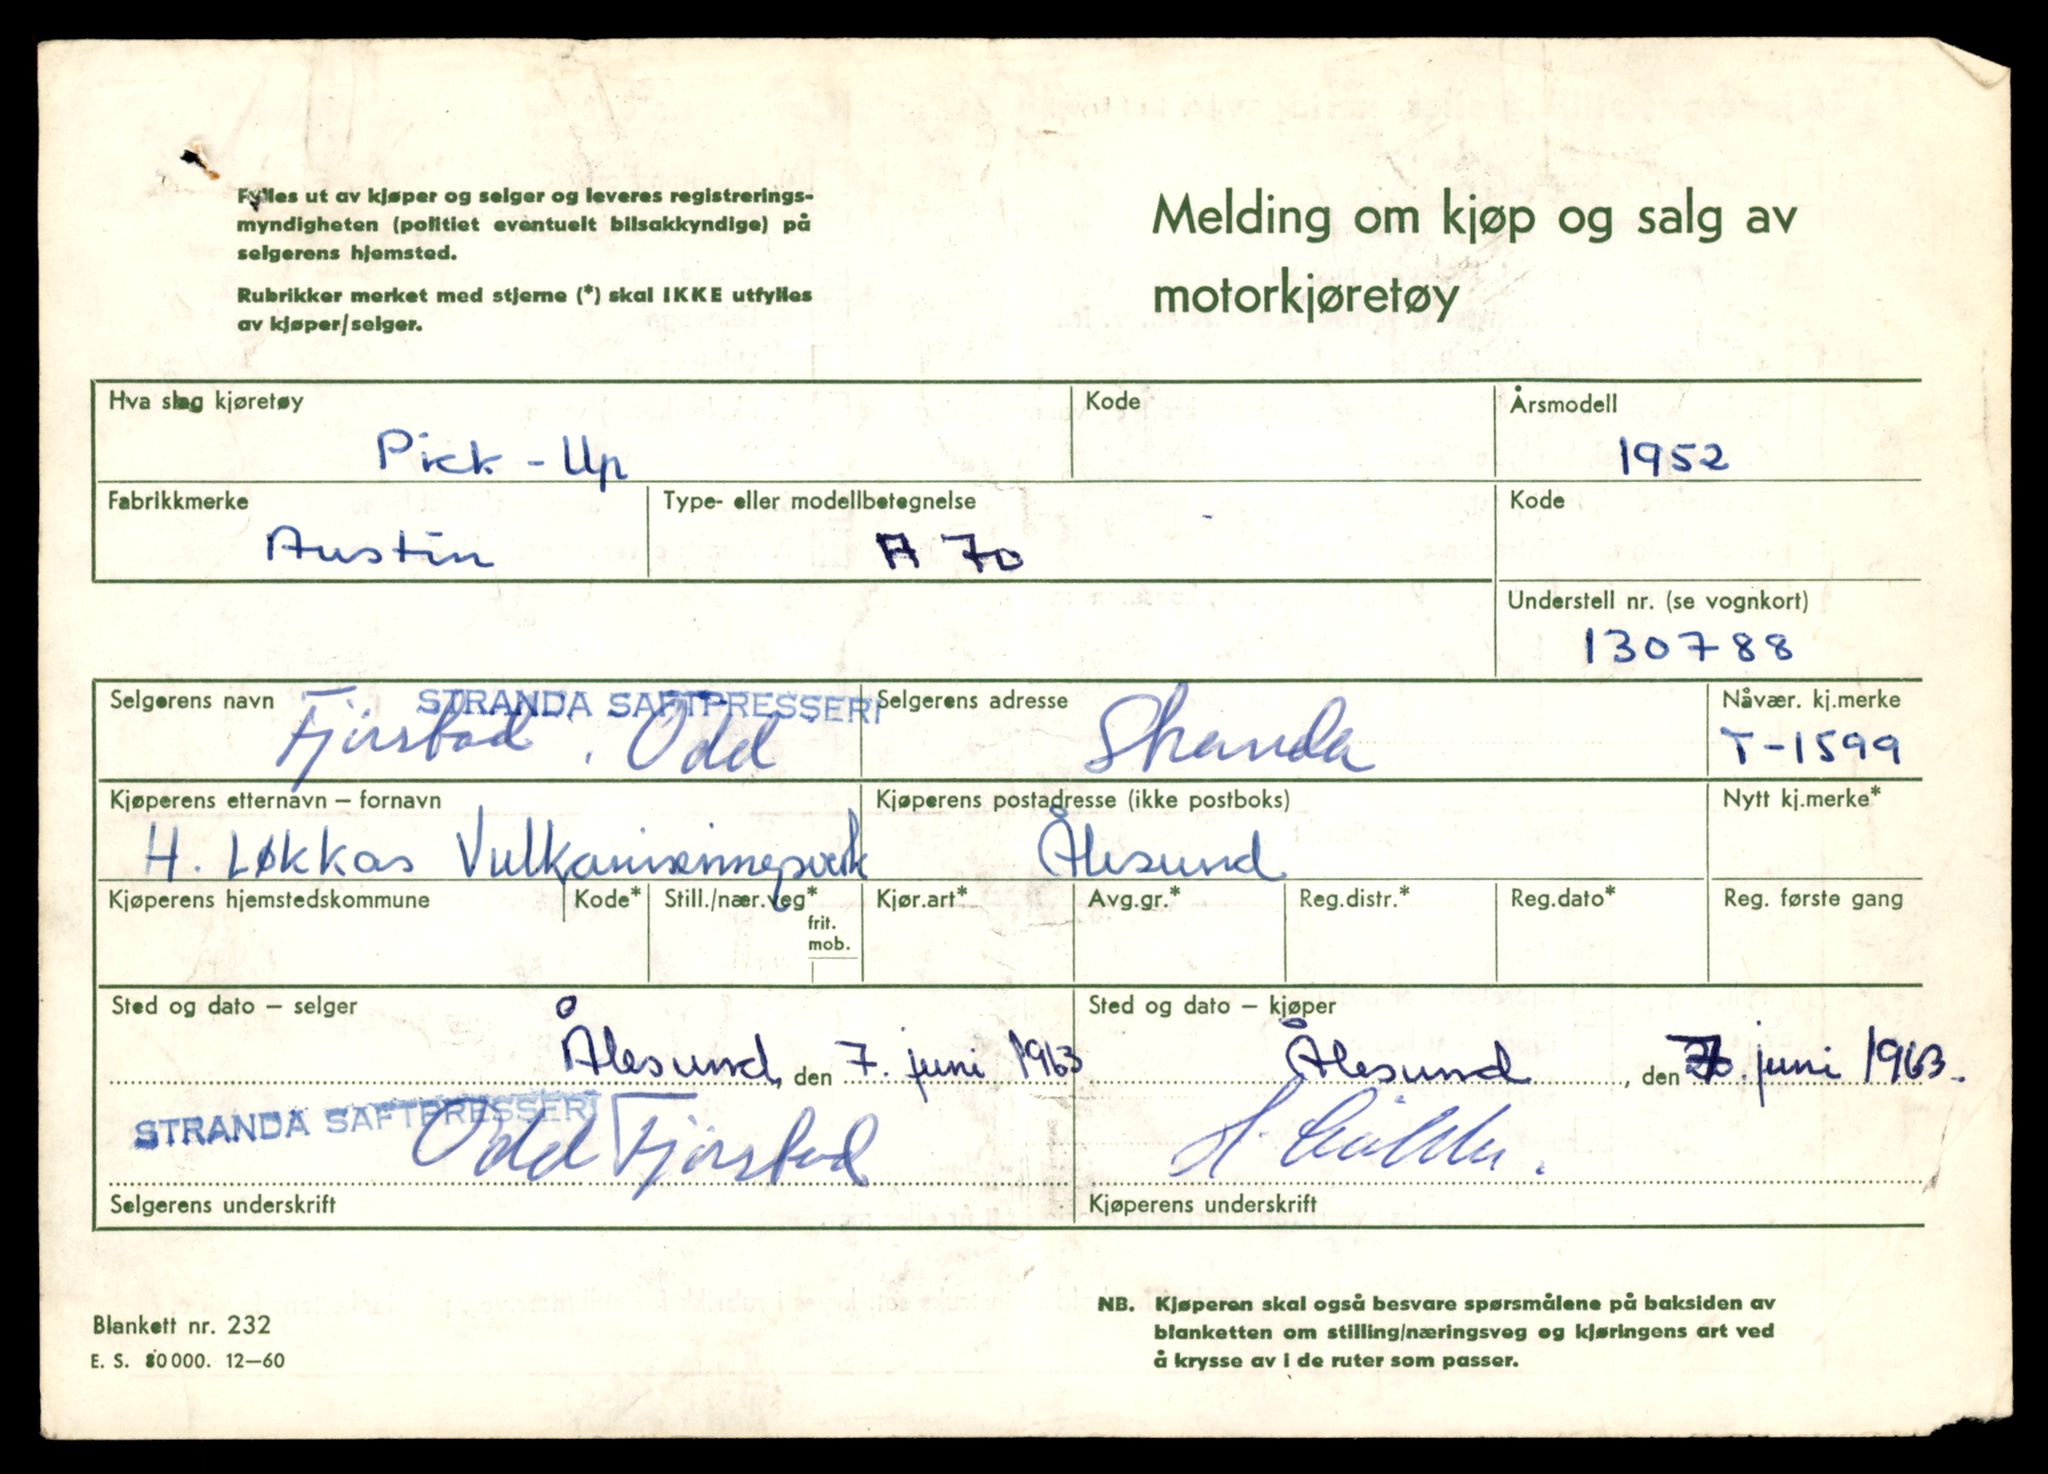 Fylles ut av kjøper og selger og leveres registrerings-
myndigheten (politiet eventuelt bilsakkyndige) på
selgerens hjemsted.
Rubrikker merket med stjerne (*) skal IKKE utfylles
av kjøper/selger.
Melding om kjøp og salg av
motorkjøretøy
Hva slag kjøretøy
Pick-Up
Kode
Årsmodell
1952
Fabrikkmerke
Austin
Type- eller modellbetegnelse
A 70
Kode
Understell nr. (se vognkort)
130788
Selgerens navn
STRANDA SAFTPRESSERI
Fjørstad, Odd
Selgerens adresse
Stranda
Nåvær. kj.merke
T-1599
Kjøperens etternavn – fornavn
H. Løkkas
Kjøperens postadresse (ikke postboks)
Ålesund
Nytt kj.merke*
Kjøperens hjemstedskommune
Kode*
Still./nær.veg*
frit.
mob.
Kjør.art*
Avg.gr.*
Reg.distr.*
Reg.dato*
Reg. første gang
Sted og dato – selger
Ålesund, den 7. juni 1963
Sted og dato – kjøper
Ålesund, den 7. juni 1963.
STRANDA SAFTPRESSERI
Odd Fjørstad
Selgerens underskrift
Kjøperens underskrift
Blankett nr. 232
E. S. 80000. 12–60
NB. Kjøperen skal også besvare spørsmålene på baksiden av
blanketten om stilling/næringsveg og kjøringens art ved
å krysse av i de ruter som passer.